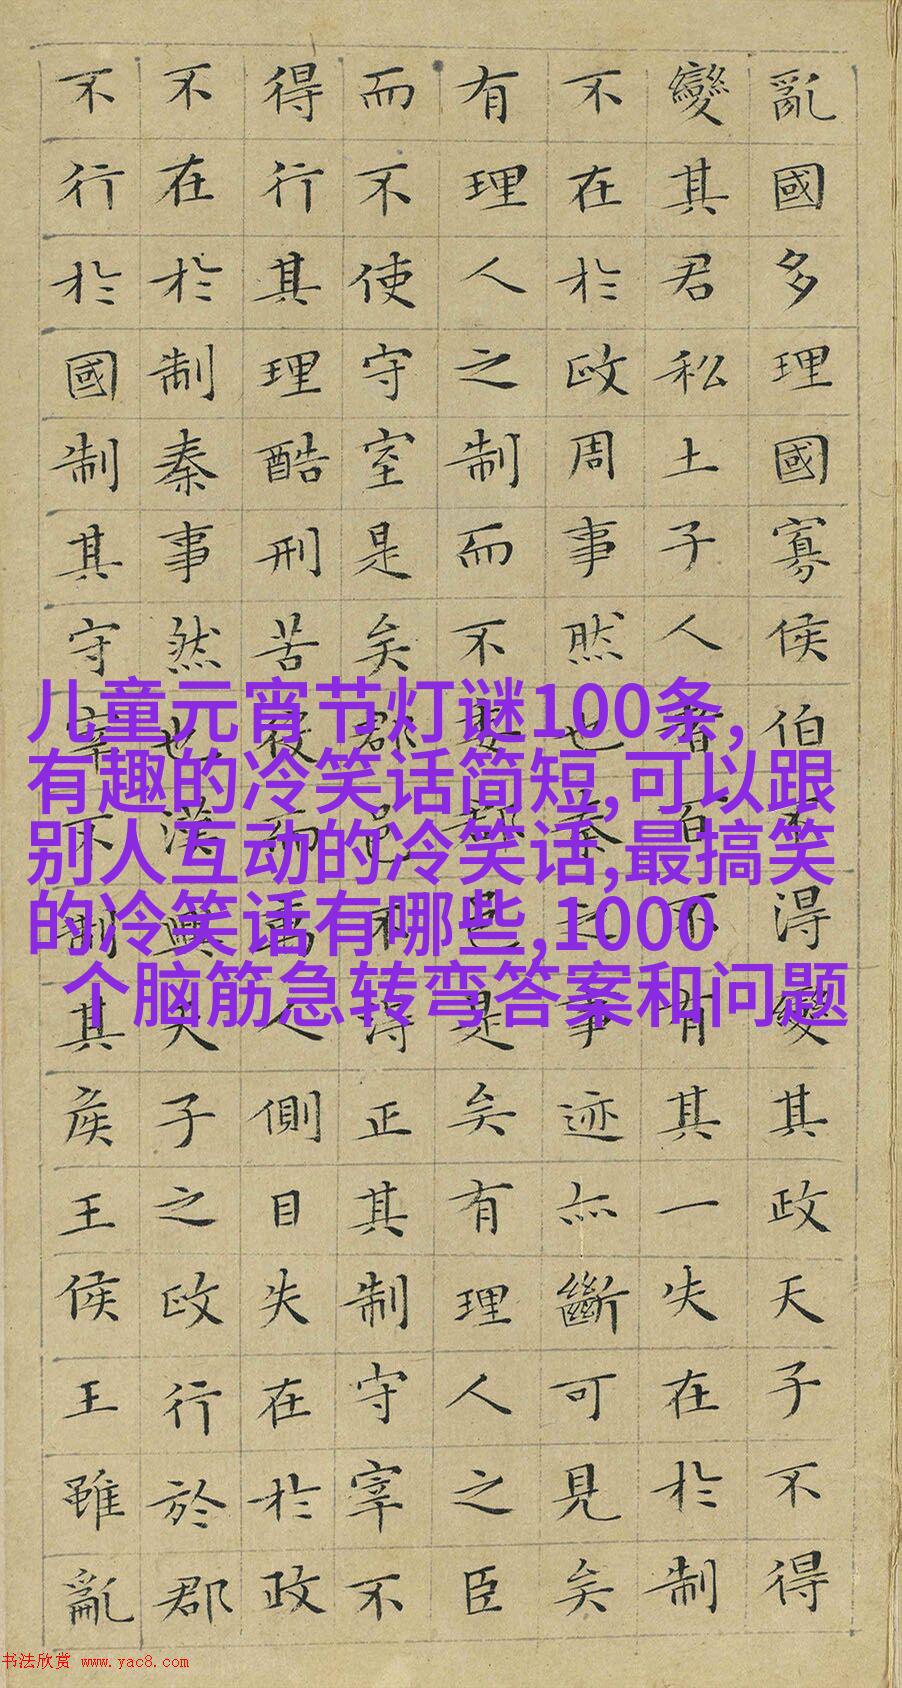 亂國多理國寡侯伯不得變其政天子不得
變其君私土子人者百不有其一失在於制
不在於政周事然也秦之事迹亦斷可見矣
有理人之制而不委郡邑是矣有理人之臣
而不使守宰是矣郡邑不得正其制守宰不
得行其理酷刑苦役而萬人側目失在於政
不在於制秦事然也漢興天子之政行於郡
不行於國制其守宰不制其侯王侯王雖亂
儿童元宵节灯谜100条,
有趣的冷笑话简短,可以跟
别人互动的冷笑话,最搞笑
的冷笑话有哪些,1000
个脑筋急转弯答案和问题
书法欣赏 www.yac8.com